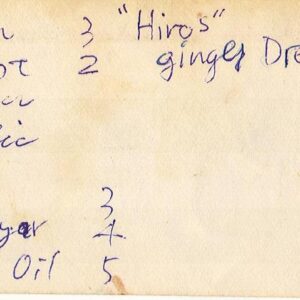 3 "Hiros"
ot 2 ginger Dre
3
gar 4
Oil 5